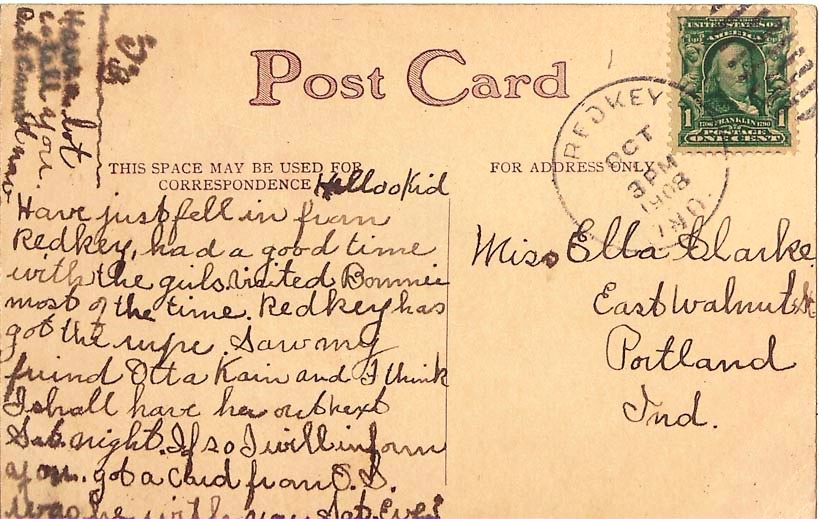 Have a lot
to tell you.
Post Card
THIS SPACE MAY BE USED FOR
CORRESPONDENCE
Hello Kid
Have just fell in from
Redkey, had a good time
with the girls. visited Bonnie
most of the time. Redkey has
got the
Saw my
friend Otta Kain and I think
I shall have her out next
Sat. night. If so I will inform
you. got a card from O.S.
was he with you Sat. Eve?
FOR ADDRESS ONLY
Miss Ella Clarke
East Walnut St.
Portland
Ind.
REDKEY
OCT
3 PM
1908
IND
UNITED STATES OF
AMERICA
1706 FRANKLIN 1790
1 POSTAGE 1
ONE CENT